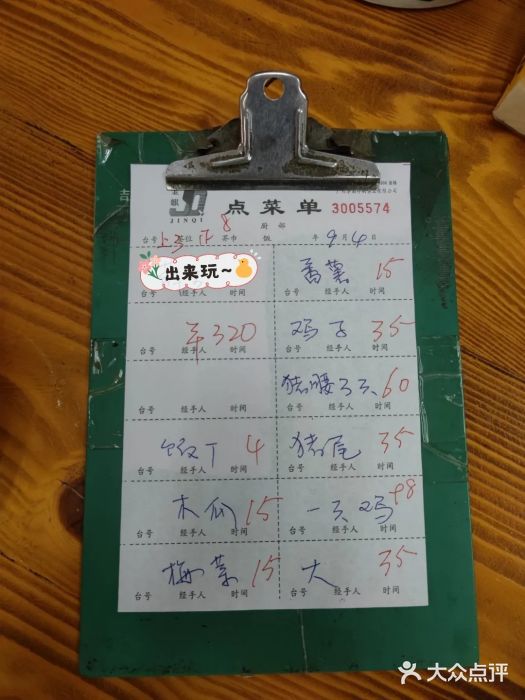 JINQI
点菜单 3005574
厨部
台号 上3 茶位 正 茶市 8 做 年 9 月 4 日
出来玩~
番薯 15
台号 经手人 时间 台号 经手人 时间
320 鸡子 35
台号 经手人 时间 台号 经手人 时间
猪腰 60
台号 经手人 时间 台号 经手人 时间
饭丁 4 猪尾 35
台号 经手人 时间 台号 经手人 时间
木瓜 15 一只鸡 98
台号 经手人 时间 台号 经手人 时间
梅菜 15 大 35
台号 经手人 时间 台号 经手人 时间
大众点评